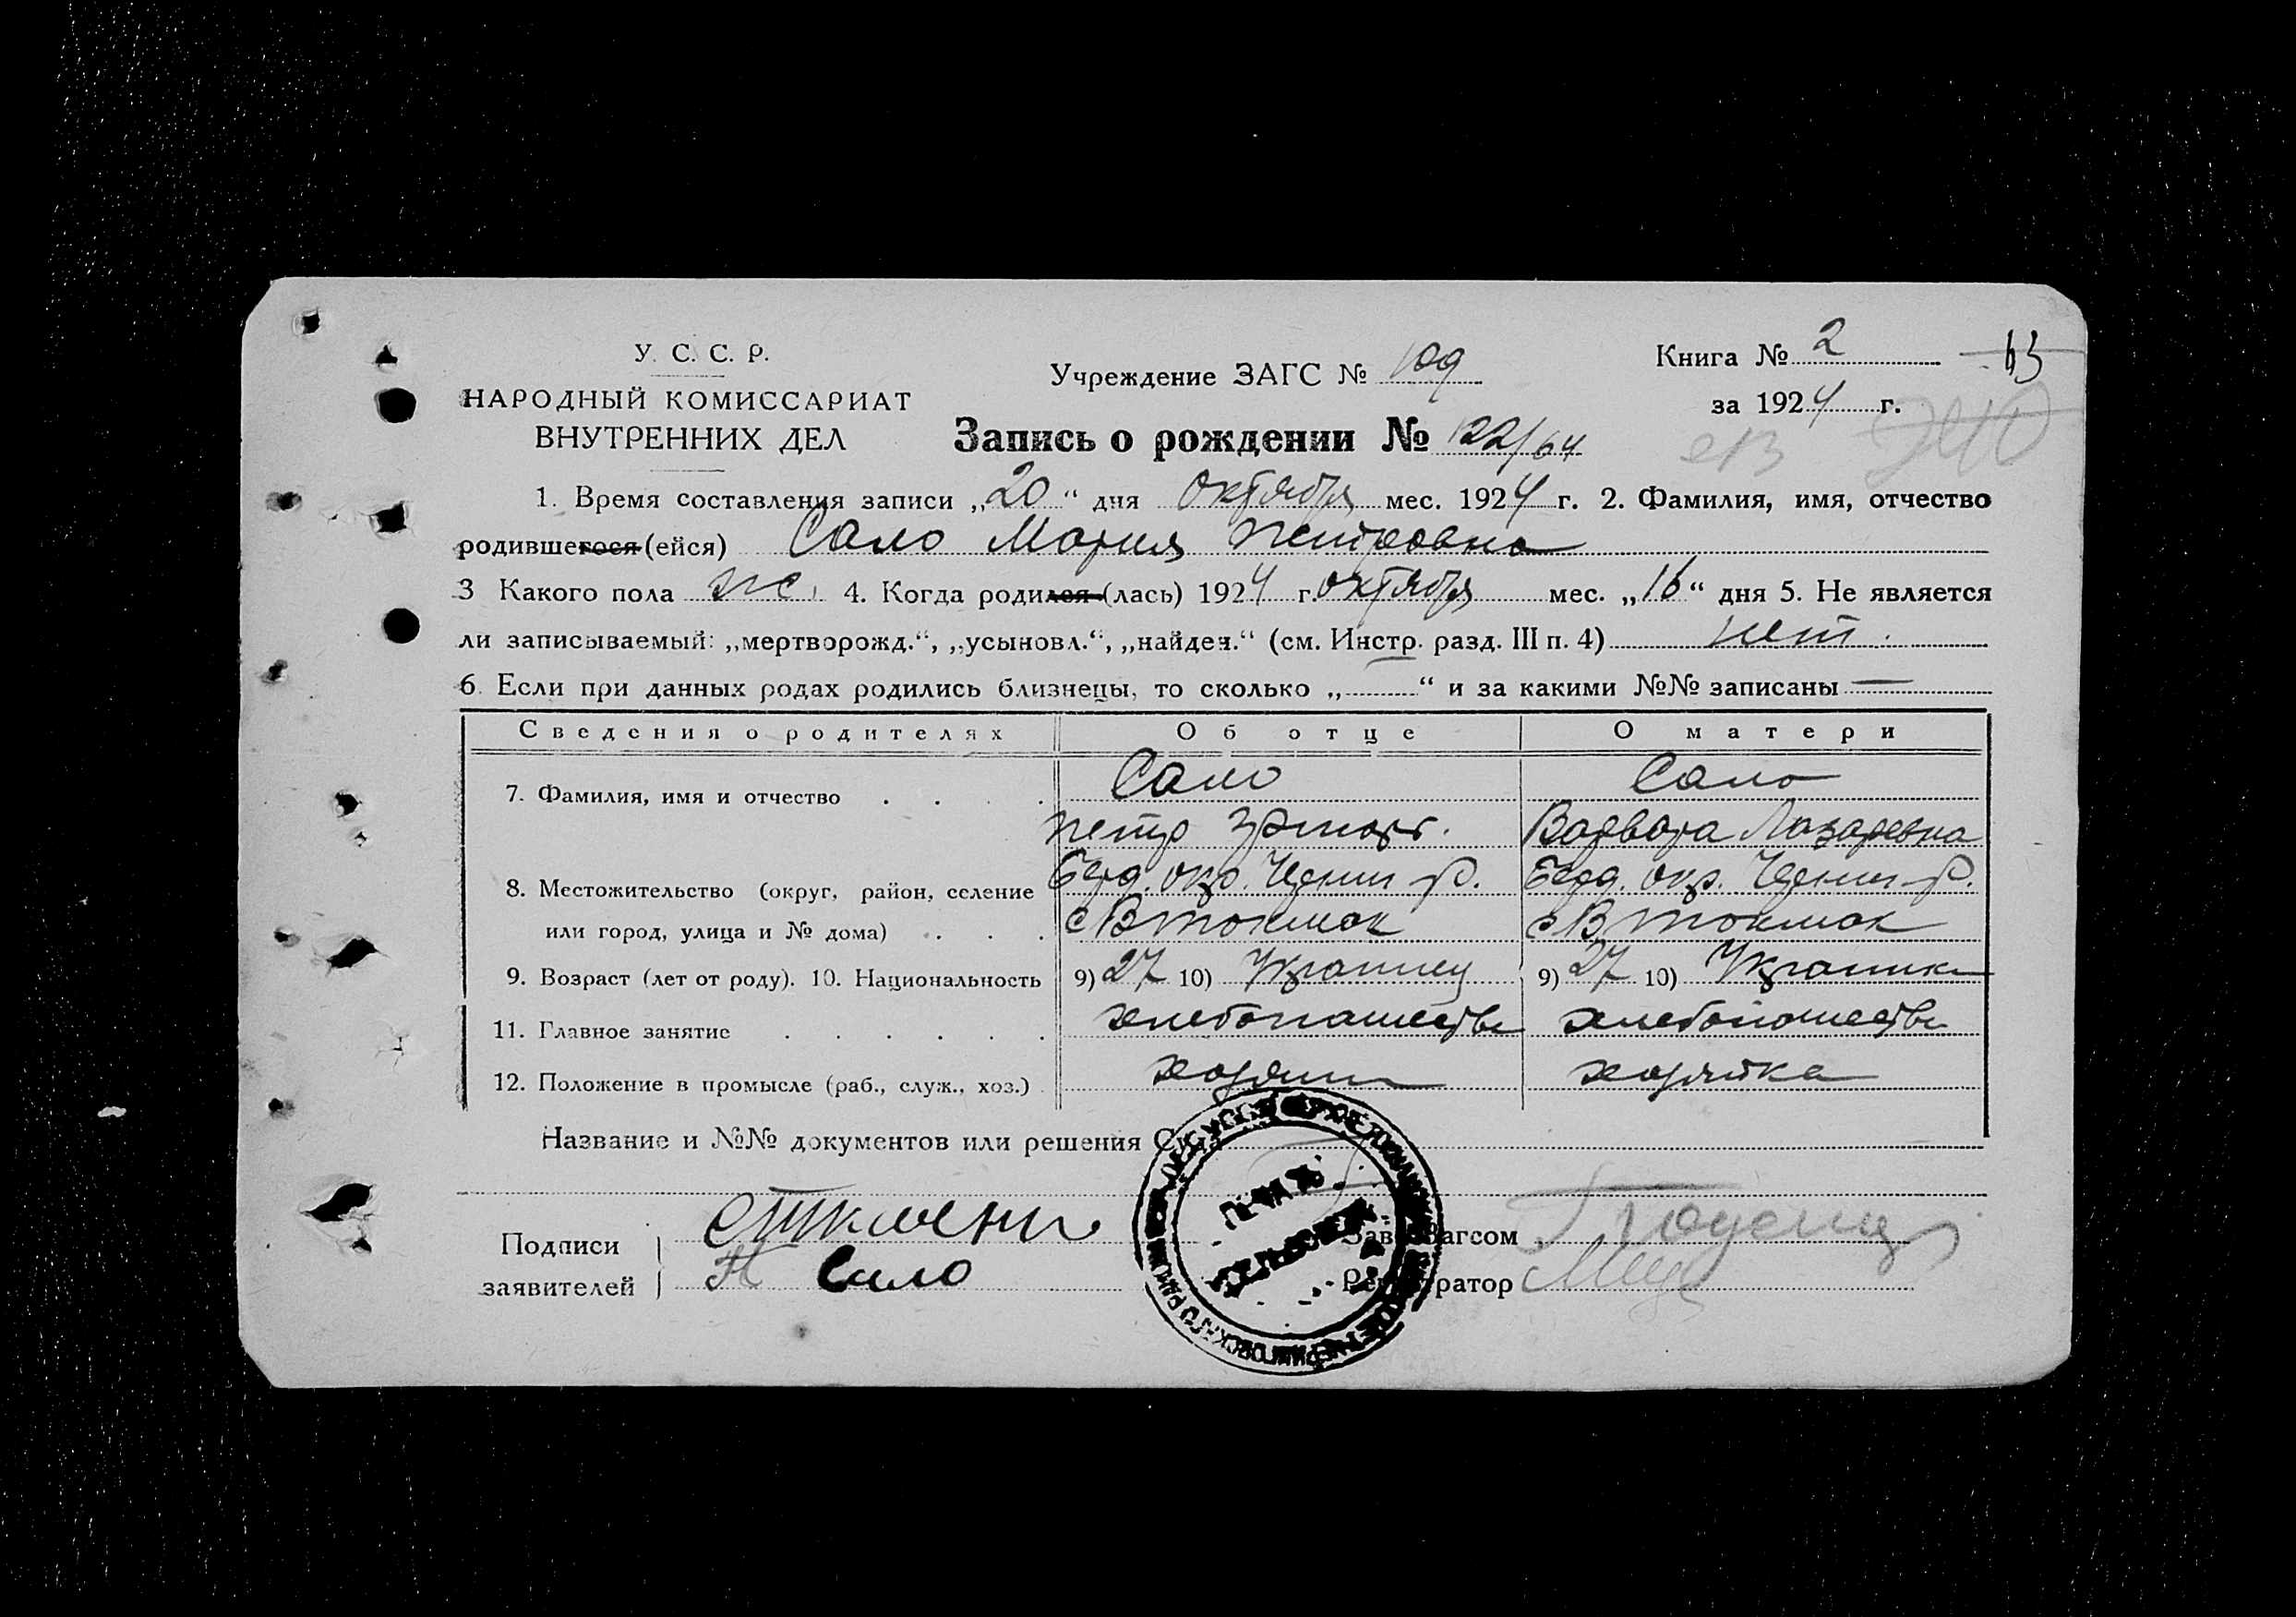 У. С. С. Р.
НАРОДНЫЙ КОМИССАРИАТ
ВНУТРЕННИХ ДЕЛ
Учреждение ЗАГС № 109
Книга № 2
за 1924 г.
Запись о рождении № 122/64
1. Время составления записи „20“ дня октября мес. 1924 г. 2. Фамилия, имя, отчество
родившегося (ейся) Сало Мария Петровна
3 Какого пола ж. 4. Когда родился (лась) 1924 г. октября мес. „16“ дня 5. Не является
ли записываемый: „мертворожд.“, „усыновл.“, „найден.“ (см. Инстр. разд. III п. 4) нет.
6. Если при данных родах родились близнецы, то сколько „ “ и за какими №№ записаны —
Сведения о родителях Об отце О матери
7. Фамилия, имя и отчество Сало Сало
Петр Варвара Лазаревна
8. Местожительство (округ, район, селение Берд. окр. р. Берд. окр. р.
или город, улица и № дома) с В Токмак с В Токмак
9. Возраст (лет от роду). 10. Национальность 9) 27 10) Украинец 9) 27 10) Украинка
11. Главное занятие хлебопашество хлебопашество
12. Положение в промысле (раб., служ., хоз.) хозяин хозяйка
Название и №№ документов или решения Суда
Подписи
заявителей
Сало
Зав. Загсом
Регистратор
ПЕЧАТЬ